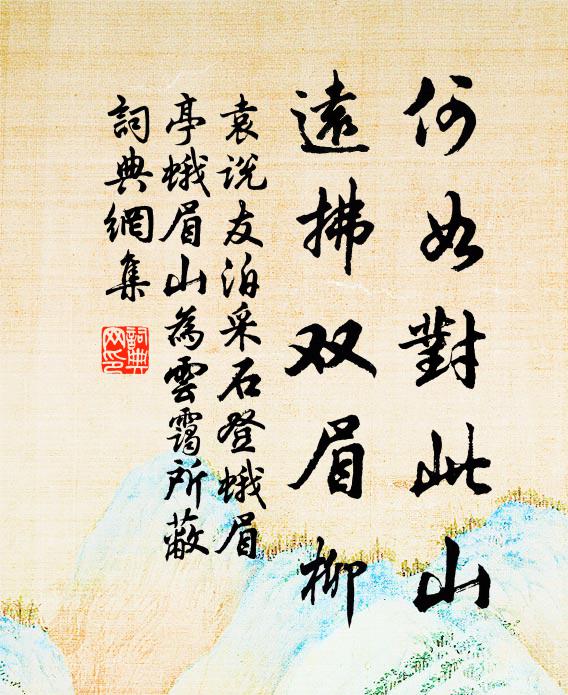 何如對此山
遠拂双眉柳
袁说友泊采石登蛾眉
亭蛾眉山為雲靄所蔽
詞典網集